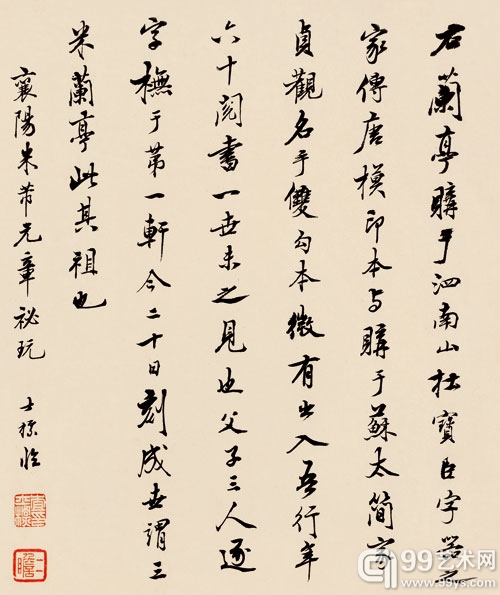 右蘭亭購于泗南山杜寶臣字器之
家傳唐模印本与購于蘇太簡家
貞觀名手雙勾本微有出入吾行年
六十閱書一世未之見也父子三人逐
字橅于第一軒今二十日刻成世謂三
米蘭亭此其祖也
襄陽米芾元章祕玩
士標臨
二瞻
99艺术网
www.99ys.com